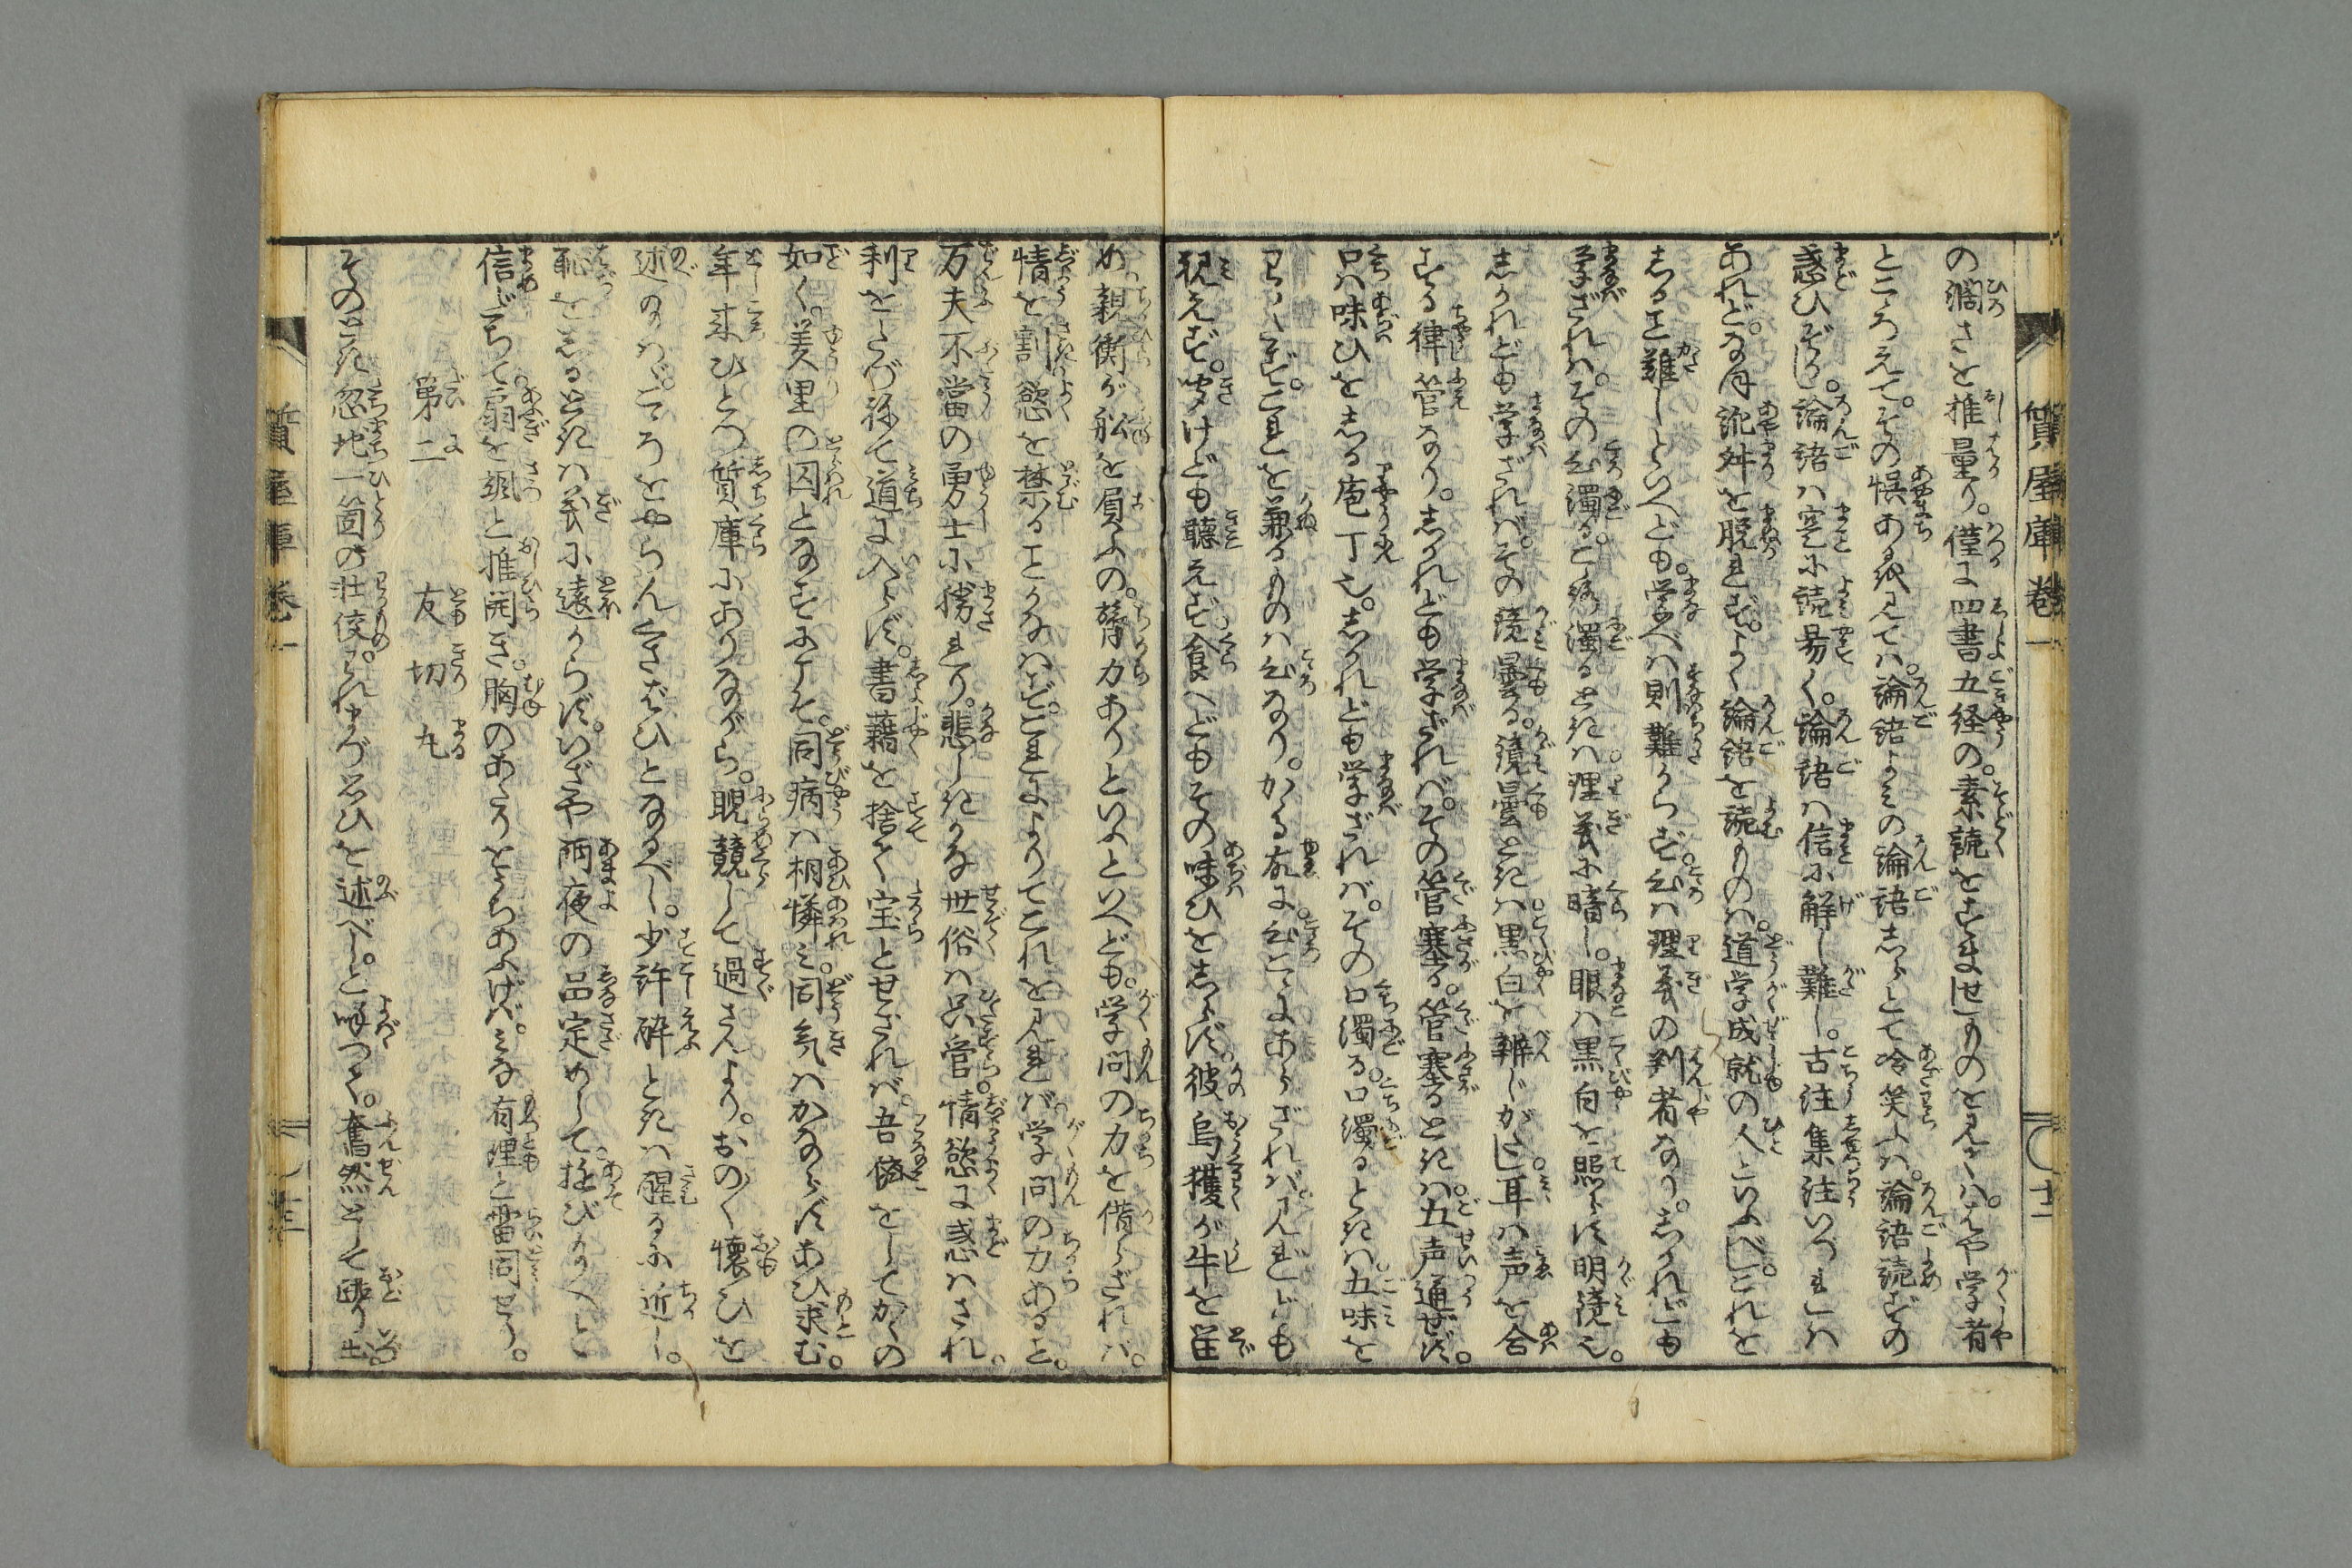 質屋庫巻一
の濶さを推量り。僅に四書五経の。素読をすませしものを見ては。はや学者
ところえて。その悞ある紙見ては。論語よみの論語しらずとて冷笑ふは。論語読ずの
惑ひぞかし。論語は寔に読易く。論語は信に解し難し。古注集注いづれかは
あれど。なほ訛舛を脱れず。よく論語を読ものは。道学成就の人といふべし。これを
しること難しといへども。学べは則難からず。心は理義の判者なり。しかれども
学ざれは。その心濁る。心濁るときは理義に暗し。眼は黒白を照らす明鏡也。
しかれども学ざれば。その鏡曇る。鏡曇ときは黒白を辨じがたし。耳は声を合
する律管なり。しかれども学ざれば。その管塞る。管塞るときは。五声通ぜず。
口は味ひをしる庖丁也。しかれども学ざれば。その口濁る。口濁るときは。五味を
わかたず。これを兼るものは心なり。かゝる故に。心こゝにあらざれば。見れども
視えず。聞けども聴えず。食へどもその味ひをしらず。彼烏獲が牛を
め親衡が船を負ふの。膂力ありといふといへども。学問の力を借らざれば。
情を割慾を禁ることかなはず。これによりてこれを見れば学問の力あること。
万夫不當の勇士に勝れり。悲しきかな世俗は只管情慾に惑はされ。
利をたづねて道に入らず。書藉を捨て宝とせざれば。吾儕をしてかくの
如く。羑里の囚となすにこそ。同病は相憐み。同気はかならずあひ求む。
年来ひとつ質庫にありながら。睨競して過さんより。おの〳〵懐ひを
述なば。こゝろをやらんくさはひとなるべし。少許酔ときは醒るに近し。
恥をしるときは義に遠からず。いざや雨夜の品定めして。遊び給へと
信だちて。扇を颯と推開き。胸のあたりをうちあふげば。みな有理と雷同せり。
第二　友切丸
そのとき忽地一箇の壮佼。われまづ思ひを述べしと呼つゝ。奮然として跳り出。
質屋庫巻一